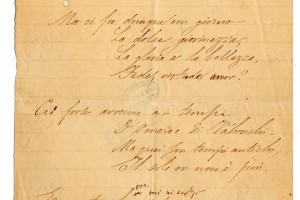 Ma ci fu dunque un giorno
La dolce giovinezza,
La gloria e la bellezza,
Fede, virtude, amor?
Ciò forse avvenne ai tempi
D'Omero e di Valmichi
Ma quei son tempi antichi,
Il sole or non è più.